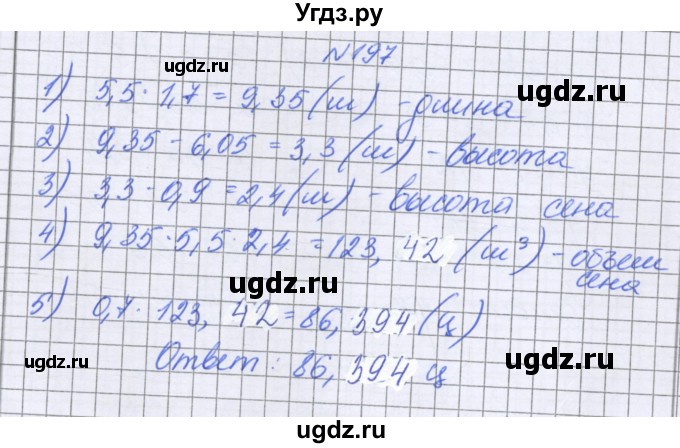 Угдз.ру
N197
1) 5,5·1,7=9,35(м) - длина
2) 9,35-6,05=3,3(м) - высота
3) 3,3-0,9=2,4(м) - высота сена
4) 9,35·5,5·2,4=123,42(м³) - объем сена
5) 0,7·123,42=86,394(ц)
Ответ: 86,394 ц
ugdz.ru
ugdz.ru
ugdz.ru
ugdz.ru
ugdz.ru
ugdz.ru
ugdz.ru